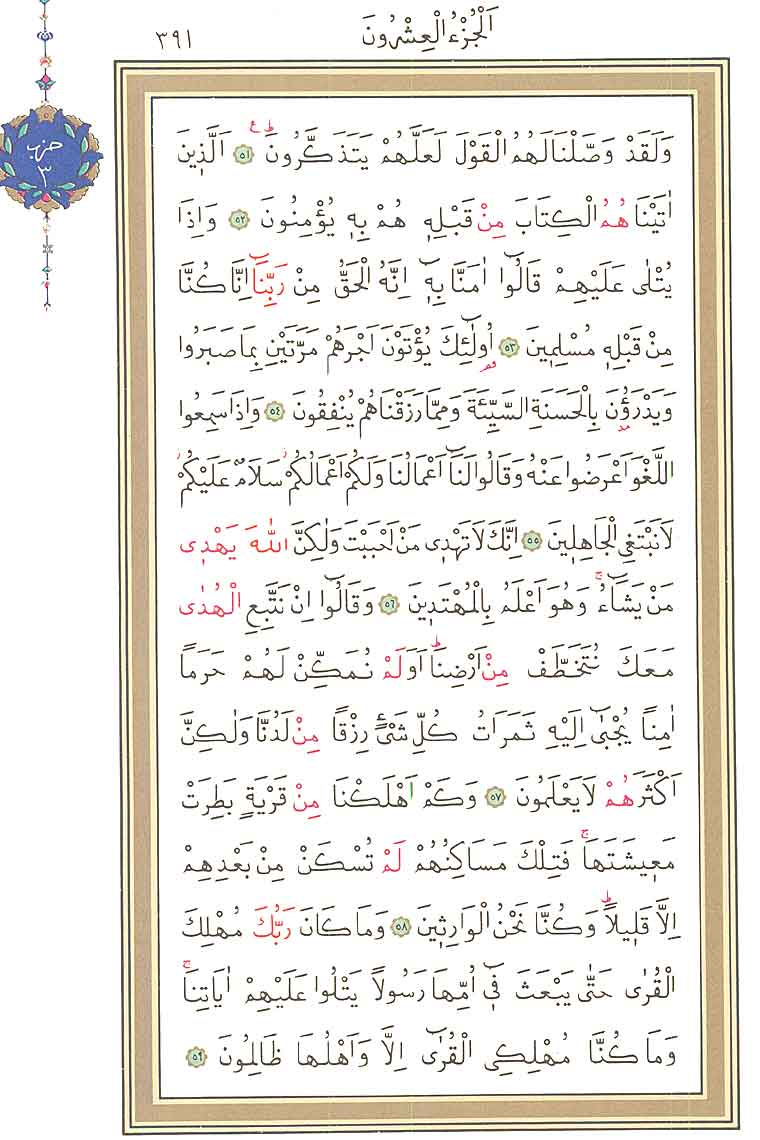 اَلْجُزْءُ الْعِشْرُونَ
٣٩١
حزب
٣
وَلَقَدْ وَصَّلْنَا لَهُمُ الْقَوْلَ لَعَلَّهُمْ يَتَذَكَّرُونَۜ ع ٥١ اَلَّذ۪ينَ
اٰتَيْنَا هُمُ الْكِتَابَ مِنْ قَبْلِه۪ هُمْ بِه۪ يُؤْمِنُونَ ٥٢ وَاِذَا
يُتْلٰى عَلَيْهِمْ قَالُٓوا اٰمَنَّا بِه۪ٓ اِنَّهُ الْحَقُّ مِنْ رَبِّنَٓا اِنَّا كُنَّا
مِنْ قَبْلِه۪ مُسْلِم۪ينَ ٥٣ اُو۬لٰٓئِكَ يُؤْتَوْنَ اَجْرَهُمْ مَرَّتَيْنِ بِمَا صَبَرُوا
وَيَدْرَؤُ۫نَ بِالْحَسَنَةِ السَّيِّئَةَ وَمِمَّا رَزَقْنَاهُمْ يُنْفِقُونَ ٥٤ وَاِذَا سَمِعُوا
اللَّغْوَ اَعْرَضُوا عَنْهُ وَقَالُوا لَنَٓا اَعْمَالُنَا وَلَكُمْ اَعْمَالُكُمْۘ سَلَامٌ عَلَيْكُمْۘ
لَا نَبْتَغِي الْجَاهِل۪ينَ ٥٥ اِنَّكَ لَا تَهْد۪ي مَنْ اَحْبَبْتَ وَلٰكِنَّ اللّٰهَ يَهْد۪ي
مَنْ يَشَٓاءُۚ وَهُوَ اَعْلَمُ بِالْمُهْتَد۪ينَ ٥٦ وَقَالُٓوا اِنْ نَتَّبِعِ الْهُدٰى
مَعَكَ نُتَخَطَّفْ مِنْ اَرْضِنَاۜ اَوَلَمْ نُمَكِّنْ لَهُمْ حَرَمًا
اٰمِنًا يُجْبٰٓى اِلَيْهِ ثَمَرَاتُ كُلِّ شَيْءٍ رِزْقًا مِنْ لَدُنَّا وَلٰكِنَّ
اَكْثَرَهُمْ لَا يَعْلَمُونَ ٥٧ وَكَمْ اَهْلَكْنَا مِنْ قَرْيَةٍ بَطِرَتْ
مَع۪يشَتَهَاۚ فَتِلْكَ مَسَاكِنُهُمْ لَمْ تُسْكَنْ مِنْ بَعْدِهِمْ
اِلَّا قَل۪يلًاۜ وَكُنَّا نَحْنُ الْوَارِث۪ينَ ٥٨ وَمَا كَانَ رَبُّكَ مُهْلِكَ
الْقُرٰى حَتّٰى يَبْعَثَ ف۪ٓي اُمِّهَا رَسُولًا يَتْلُوا عَلَيْهِمْ اٰيَاتِنَاۚ
وَمَا كُنَّا مُهْلِكِي الْقُرٰٓى اِلَّا وَاَهْلُهَا ظَالِمُونَ ٥٩